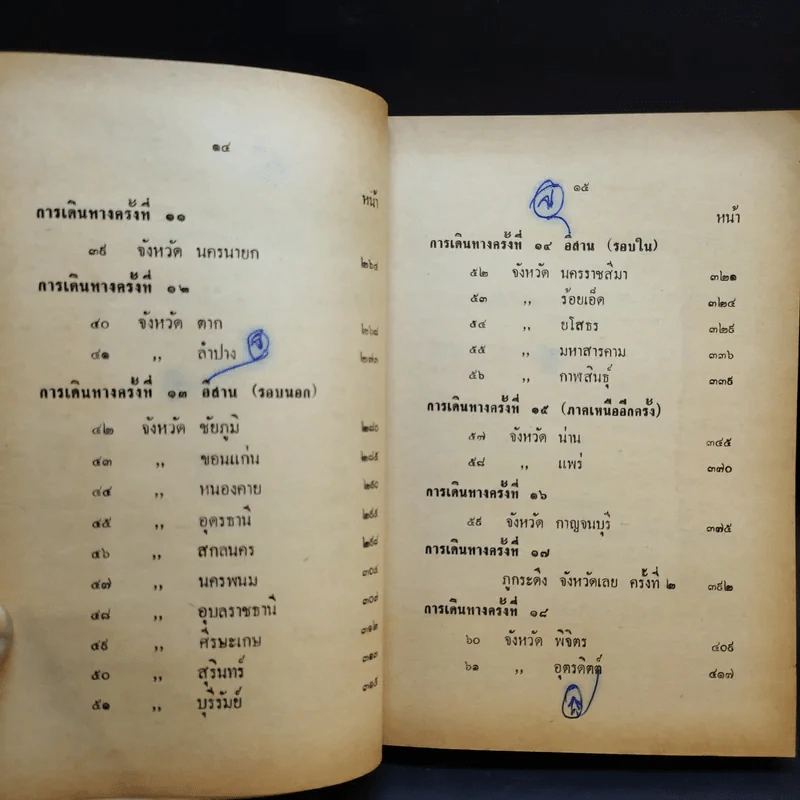 ๑๔
หน้า
การเดินทางครั้งที่ ๑๑
๓๙ จังหวัด นครนายก ๒๖๔
การเดินทางครั้งที่ ๑๒
๔๐ จังหวัด ตาก ๒๖๘
๔๑ ,, ลำปาง ๒๗๓
การเดินทางครั้งที่ ๑๓ อีสาน (รอบนอก)
๔๒ จังหวัด ชัยภูมิ ๒๘๐
๔๓ ,, ขอนแก่น ๒๘๕
๔๔ ,, หนองคาย ๒๙๐
๔๕ ,, อุดรธานี ๒๙๕
๔๖ ,, สกลนคร ๒๙๘
๔๗ ,, นครพนม ๓๐๔
๔๘ ,, อุบลราชธานี ๓๐๗
๔๙ ,, ศีรษะเกษ ๓๑๒
๕๐ ,, สุรินทร์ ๓๑๓
๕๑ ,, บุรีรัมย์ ๓๑๙
๑๕
หน้า
การเดินทางครั้งที่ ๑๔ อีสาน (รอบใน)
๕๒ จังหวัด นครราชสีมา ๓๒๑
๕๓ ,, ร้อยเอ็ด ๓๒๔
๕๔ ,, ยโสธร ๓๒๙
๕๕ ,, มหาสารคาม ๓๓๖
๕๖ ,, กาฬสินธุ์ ๓๓๙
การเดินทางครั้งที่ ๑๕ (ภาคเหนืออีกครั้ง)
๕๗ จังหวัด น่าน ๓๔๕
๕๘ ,, แพร่ ๓๗๐
การเดินทางครั้งที่ ๑๖
๕๙ จังหวัด กาญจนบุรี ๓๗๕
การเดินทางครั้งที่ ๑๗
ภูกระดึง จังหวัดเลย ครั้งที่ ๒ ๓๙๒
การเดินทางครั้งที่ ๑๘
๖๐ จังหวัด พิจิตร ๔๐๙
๖๑ ,, อุตรดิตต์ ๔๑๗